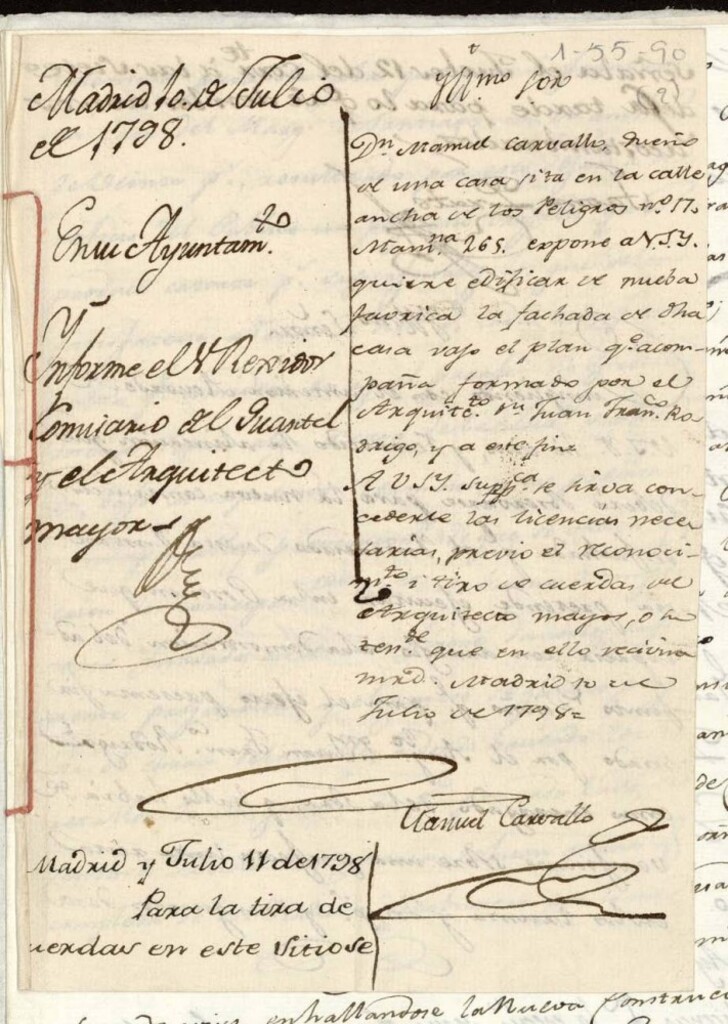 1-55-90
Madrid 10. de Julio
de 1798.
En su Ayuntam.to
Ynforme el S.r Rexidor
Comisario del Quartel
y el Arquitecto
mayor
Yll.mo Sor
Dn. Manuel Carvallo, dueño
de una casa sita en la calle
ancha de los Peligros nº. 17.
Manz.na 265. expone a V.S.Y.
quiere edificar de nueba
favrica la fachada de dha
casa vajo el plan q.e acom-
paña formado por el
Arquitec.to Dn Juan Fran.co Ro-
drigo, y a este fin=
A V.S.Y. supp.ca se sirva con-
cederle las licencias nece-
sarias, previo el reconoci-
m.to i tiro de cuerdas del
Arquitecto mayor,
que en ello recivira
mrd. Madrid 10 de
Julio de 1798=
Manuel Carvallo
Madrid y Julio 11 de 1798
Para la tira de
uerdas en este sitio se
enhallandose la Nueva Construcc